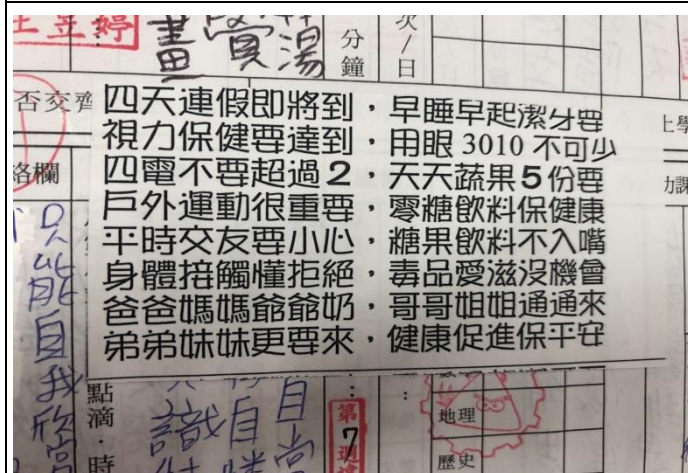 畫賞湯
分鐘
次/日
否交齊
四天連假即將到，早睡早起潔牙要
視力保健要達到，用眼 3010 不可少
四電不要超過2，天天蔬果5份要
戶外運動很重要，零糖飲料保健康
平時交友要小心，糖果飲料不入嘴
身體接觸懂拒絕，毒品愛滋沒機會
爸爸媽媽爺爺奶，哥哥姐姐通通來
弟弟妹妹更要來，健康促進保平安
上學
絡欄
只能自我欣賞
點滴
時
自
第7週
地理
歷史